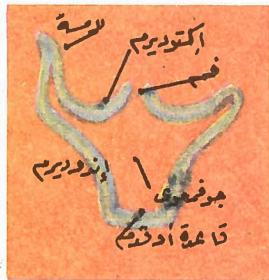 لامسة
إكتوديرم
فم
إندوديرم
جوفمعوى
قاعدة أو قدم